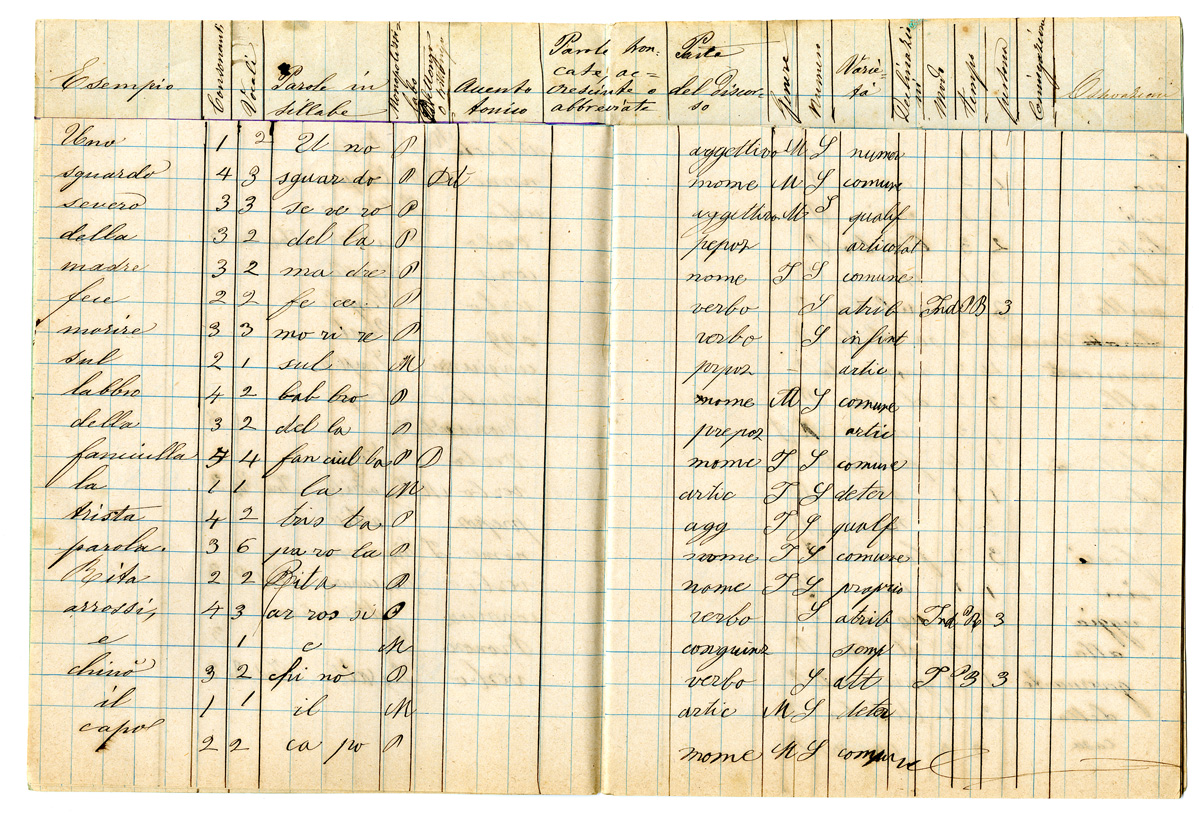 Esempio Consonanti Vocali Parole in sillabe Monosillabe Accento tonico Parole troncate, accresciute o abbreviate Parte del Discorso Genere Numero Varietà Modo tempo persona Coniugazione Osservazioni
Uno 1 2 U no P aggettivo M S numer
sguardo 4 3 sguar do P Dit nome M S comune
severo 3 3 se ve ro P aggettivo M S qualif
della 3 2 del la P pepoz articolat
madre 3 2 ma dre P nome F S comune
fece 2 2 fe ce P verbo S atrib Ind P R 3
morire 3 3 mo ri re P verbo S infint
sul 2 1 sul M prpoz artic
labbro 4 2 bab bro P nome M S comune
della 3 2 del la P prepoz artic
fanciulla 5 4 fan ciul la P D nome F S comune
la 1 1 la M artic F S deter
trista 4 2 tris ta P agg F S qualf
parola. 3 6 pa ro la P nome F S comune
Rita 2 2 Rita P nome F S proprio
arrossi, 4 3 ar ros si P verbo S atrib Ind P R 3
e 1 e M conguinz semp
chinò 3 2 chi nò P verbo S att I P R 3
il 1 1 il M artic M S deter
capo 2 2 ca po P nome M S comune